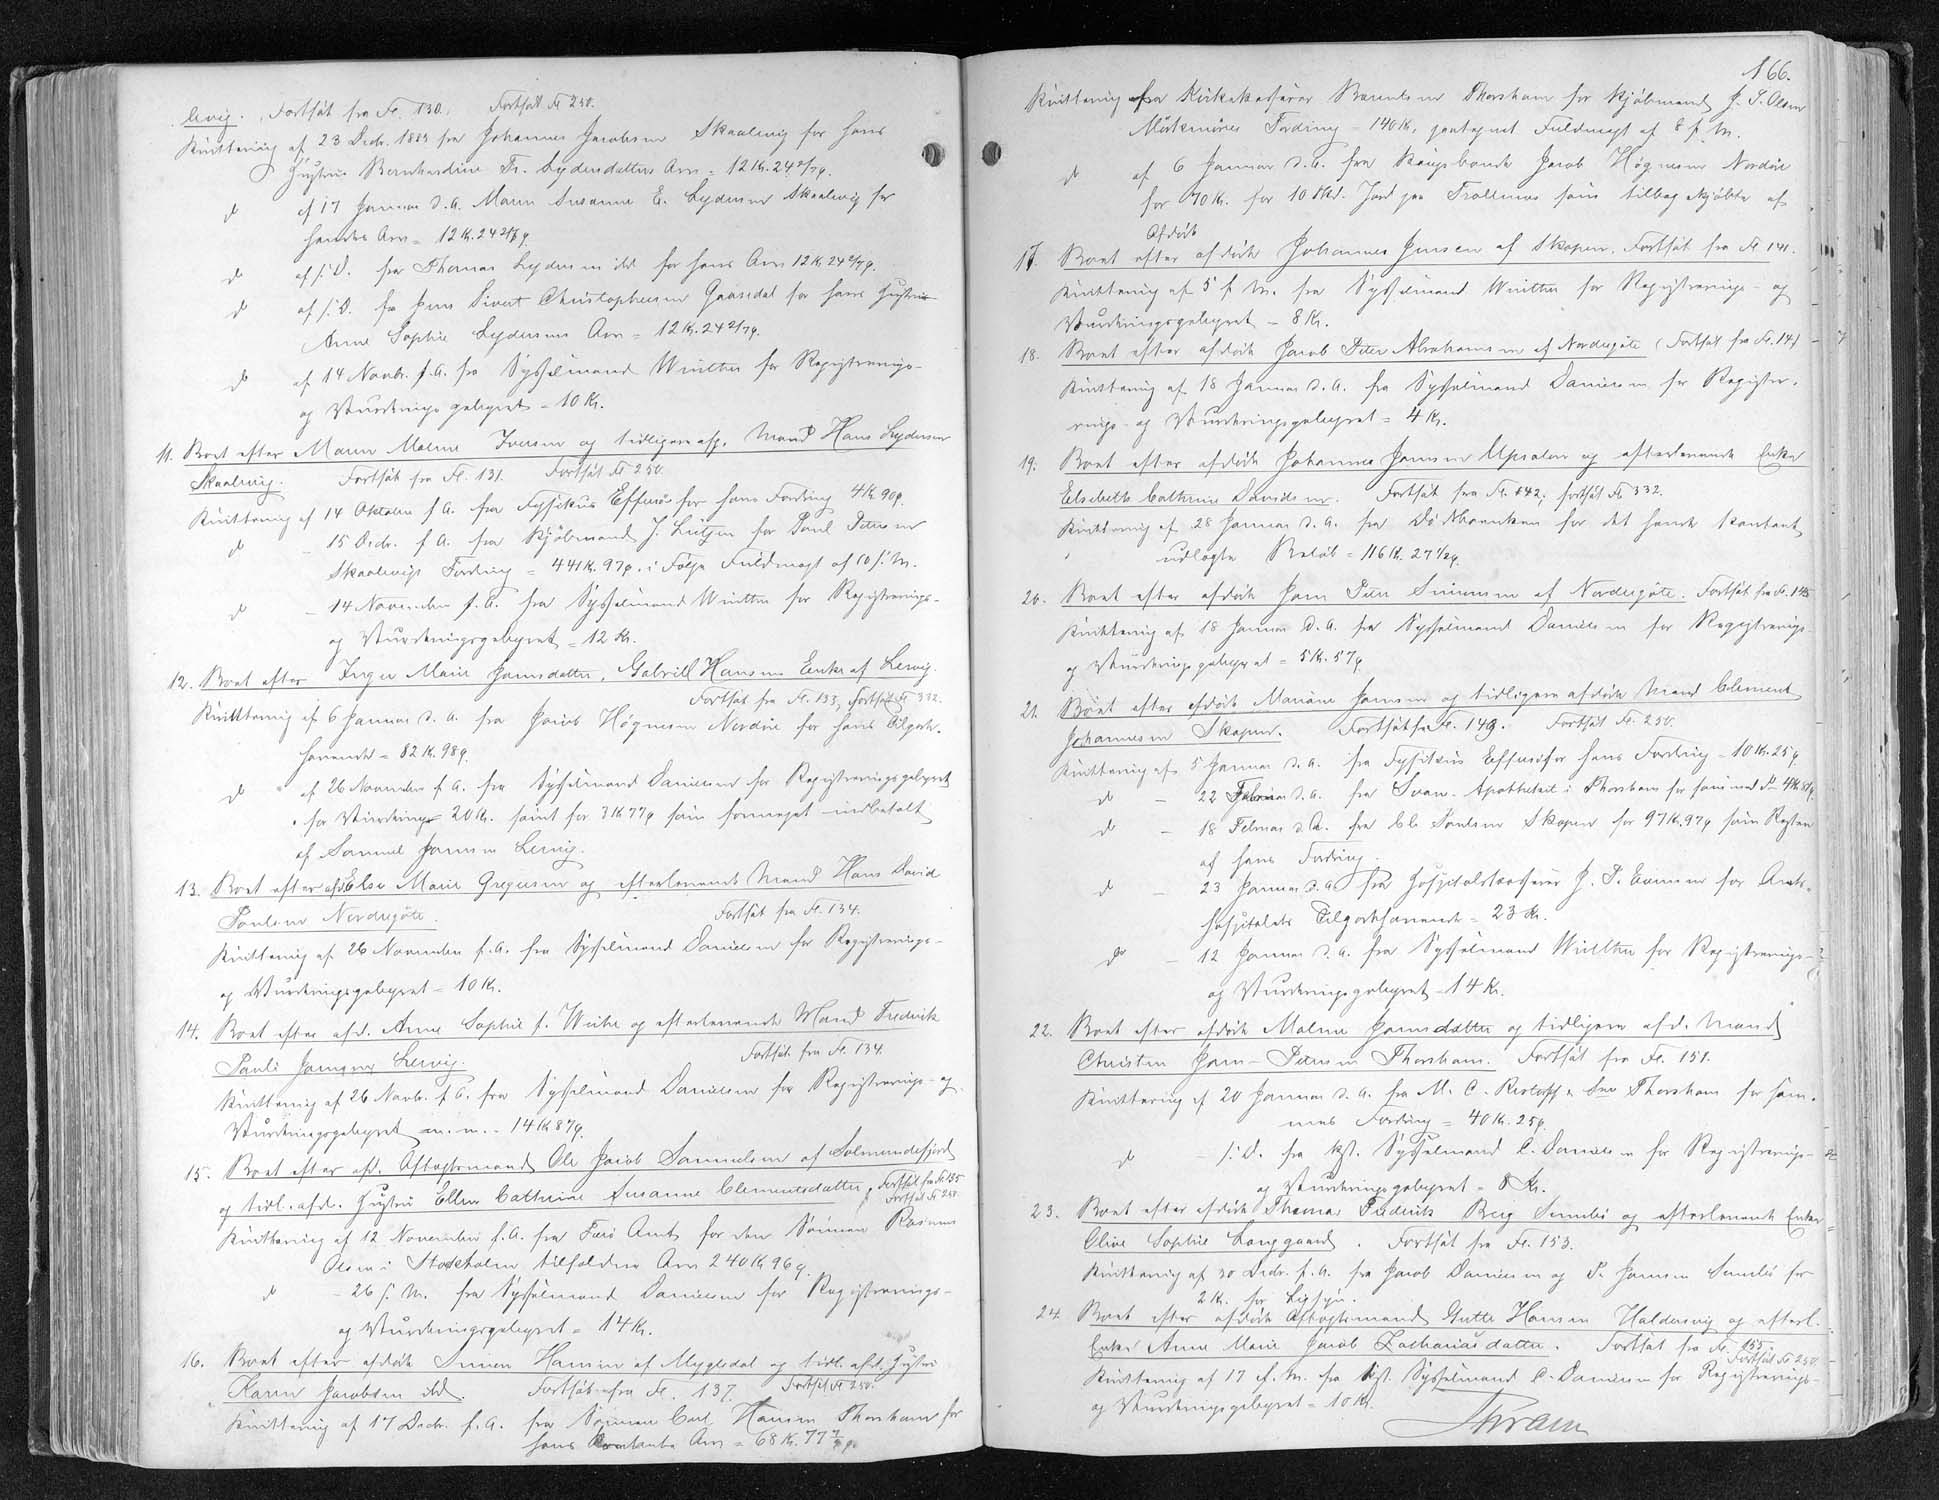 levig. Fortsat fra Fl. 130. Fortsat Fl 250.
Kvittering af 23 Decbr. 1889 fra Johannes Jacobsen Skaalevig for hans
Hustru Bernhardine Fr. Lydersdatters Arv = 12 Kr. 24 2/7 ø.
do af 17 Januar d. A. Maren Susanne E. Lydersen Skaalevig for
hendes Arv = 12 Kr. 24 2/7 ø
do af s. D. fra Thomas Lydersen ibd for hans Arv 12 Kr 24 2/7 ø.
do af s. D. fra Jens Sivert Christophersen Gaasedal for hans Hustru
Anne Sophie Lydersens Arv = 12 Kr. 24 2/7 ø.
do af 14 Novbr. f. A. fra Sysselmand Winther for Registrerings-
og Vurderingsgebyret = 10 Kr.
11. Boet efter Maren Malene Iversen og tidligere afg. Mand Hans Lydersen
Skaalevig. Fortsat fra Fl. 131. Fortsat Fl 250.
Kvittering af 14 Oktober f A. fra Fysikus Effersøe for hans Fordring 4 Kr 90 ø.
do - 15 Decbr. f A. fra Kjøbmand J. Lützen for Poul Petersen
Skaalevigs Fordring = 441 Kr. 97 ø. i Følge Fuldmagt af 10 s. M.
do - 14 November f. A. fra Sysselmand Winther for Registrerings-
og Vurderingsgebyret = 12 Kr.
12. Boet efter Inger Marie Joensdatter, Gabriel Hansens Enke af Lervig.
Fortsat fra Fl. 133, Fortsat Fl 332.
Kvittering af 6 Januar d. A. fra Jacob Høgnesen Nordøre for hans Tilgode-
havende = 82 Kr. 98 ø.
do af 26 November f. A. fra Sysselmand Danielsen for Registreringsgebyret
for Vurdering 20 Kr. samt for 3 Kr 77 ø som formeget indbetalt
af Samuel Joensen Lervig.
13. Boet efter afd. Else Marie Gregersen og efterlevende Mand Hans David
Poulsen Nordregöte. Fortsat fra Fl. 134.
Kvittering af 26 November f. A. fra Sysselmand Danielsen for Registrerings-
og Vurderingsgebyret = 10 Kr.
14. Boet efter afd. Anne Sophie f. Weihe og efterlevende Mand Frederik
Pauli Joensen Lervig. Fortsat fra Fl. 134.
Kvittering af 26 Novb. f A. fra Sysselmand Danielsen for Registrerings- og
Vurderingsgebyret m. m. - 14 Kr 87 ø.
15. Boet efter afd. Aftægtsmand Ole Jacob Samuelsen af Solmundefjord
og tidl. afd. Hustru Ellen Cathrine Susanne Clementsdatter, Fortsat fra Fl 135
Fortsat Fl 250.
Kvittering af 12 November f. A. fra Færø Amt for den Sønnen Rasmus
Olsen i Stokholm tilfaldne Arv 240 Kr 96 ø.
do - 26 s. M. fra Sysselmand Danielsen for Registrerings-
og Vurderingsgebyret = 14 Kr.
16. Boet efter afdøde Simon Hansen af Mygledal og tidl. afd. Hustru
Karen Jacobsen ibd. Fortsat fra Fl. 137. Fortsat Fl 250.
Kvittering af 17 Decbr. f. A. fra Sønnen Carl Hansen Thorshavn for
hans kontante Arv = 68 Kr. 77 ø.
166.
Kvittering fra Kirkekasserer Berentsen Thorshavn for Kjøbmand J. P. Olsen
Fordring = 140 Kr, Fuldmagt af 8 f. M.
do af 6 Januar d. A. fra Kongsbonde Jacob Høgnesen Nordøre
for 70 Kr. for 10 Jord paa Trøllenæs som tilbagekjøbte af
Afdøde
17. Boet efter afdøde Johannes Jensen af Skopen. Fortsat fra Fl 141.
Kvittering af 5 f M. fra Sysselmand Winther for Registrerings- og
Vurderingsgebyret = 8 Kr.
18. Boet efter afdøde Jacob Peter Abrahamsen af Nordregöte (Fortsat fra Fl. 141)
Kvittering af 18 Januar d. A. fra Sysselmand Danielsen for Registre-
rings- og Vurderingsgebyret = 4 Kr.
19. Boet efter afdøde Johannes Joensen Upsalen og efterlevende Enke
Elsebeth Cathrine Davidsen. Fortsat fra Fl. 142; fortsat Fl 332.
Kvittering af 28 Januar d. A. fra Dödbøenken for det hende kontant
udlagte Beløb = 116 Kr. 27 1/2 ø.
20. Boet efter afdøde Joen Peter Simonsen af Nordregöte. Fortsat fra Fl. 145
Kvittering af 18 Januar d. A. fra Sysselmand Danielsen for Registrerings-
og Vurderingsgebyret = 5 Kr. 57 ø
21. Boet efter afdøde Mariane Joensen og tidligere afdøde Mand Clement
Johannesen Skopen. Fortsat fra Fl. 149. Fortsat Fl. 250.
Kvittering af 5 Januar d. A. fra Fysikus Effersøe for hans Fordring - 10 Kr. 25 ø
do - 22 Februar d. A. fra Svane-Apotheket i Thorshavn for
do - 18 Februar d. A. fra Cl. Poulsen Skopen for 97 Kr. 97 ø som Resten
af hans Fordring.
do - 23 Januar d. A. fra Hospitalskasserer J. P. for Amts-
hospitalets Tilgodehavende = 23 Kr.
do - 12 Januar d. A. fra Sysselmand Winther for Registrerings-
og Vurderingsgebyret - 14 Kr.
22. Boet efter afdøde Malene Joensdatter og tidligere afd. Mand
Christen Joen-Petersen Thorshavn. Fortsat fra Fl. 151.
Kvittering af 20 Januar d. A. fra M. C. Restorff & Søn Thorshavn for sam-
mes Fordring = 40 Kr. 25 ø.
do - s. D. fra kst. Sysselmand C. Danielsen for Registrerings-
og Vurderingsgebyret = 8 Kr.
23. Boet efter afdøde Thomas Frederik Berg Sumbø og efterlevende Enke
Olive Sophie Langgaard. Fortsat fra Fl. 153.
Kvittering af 30 Decbr. f. A. fra Jacob Danielsen og P. Joensen Sumbø for
2 Kr. for Ligsyn.
24. Boet efter afdøde Aftægtsmand Gutte Hansen Haldersvig og efterl.
Enke Anne Marie Jacob Zachariasdatter. Fortsat fra Fl. 155.
Fortsat Fl 250.
Kvittering af 17 d. M. fra kst. Sysselmand C. Danielsen for Registrerings-
og Vurderingsgebyret = 10 Kr.